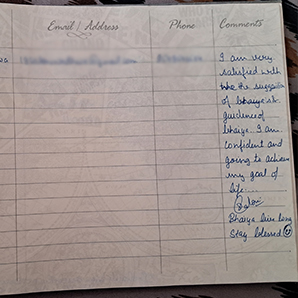 Email / Address Phone Comments
I am very
satisfied with
the suggestion
of bhaiya
guidance of
bhaiya. I am
confident and
going to achieve
my goal of
life.....
Bhaiya live long
Stay blessed